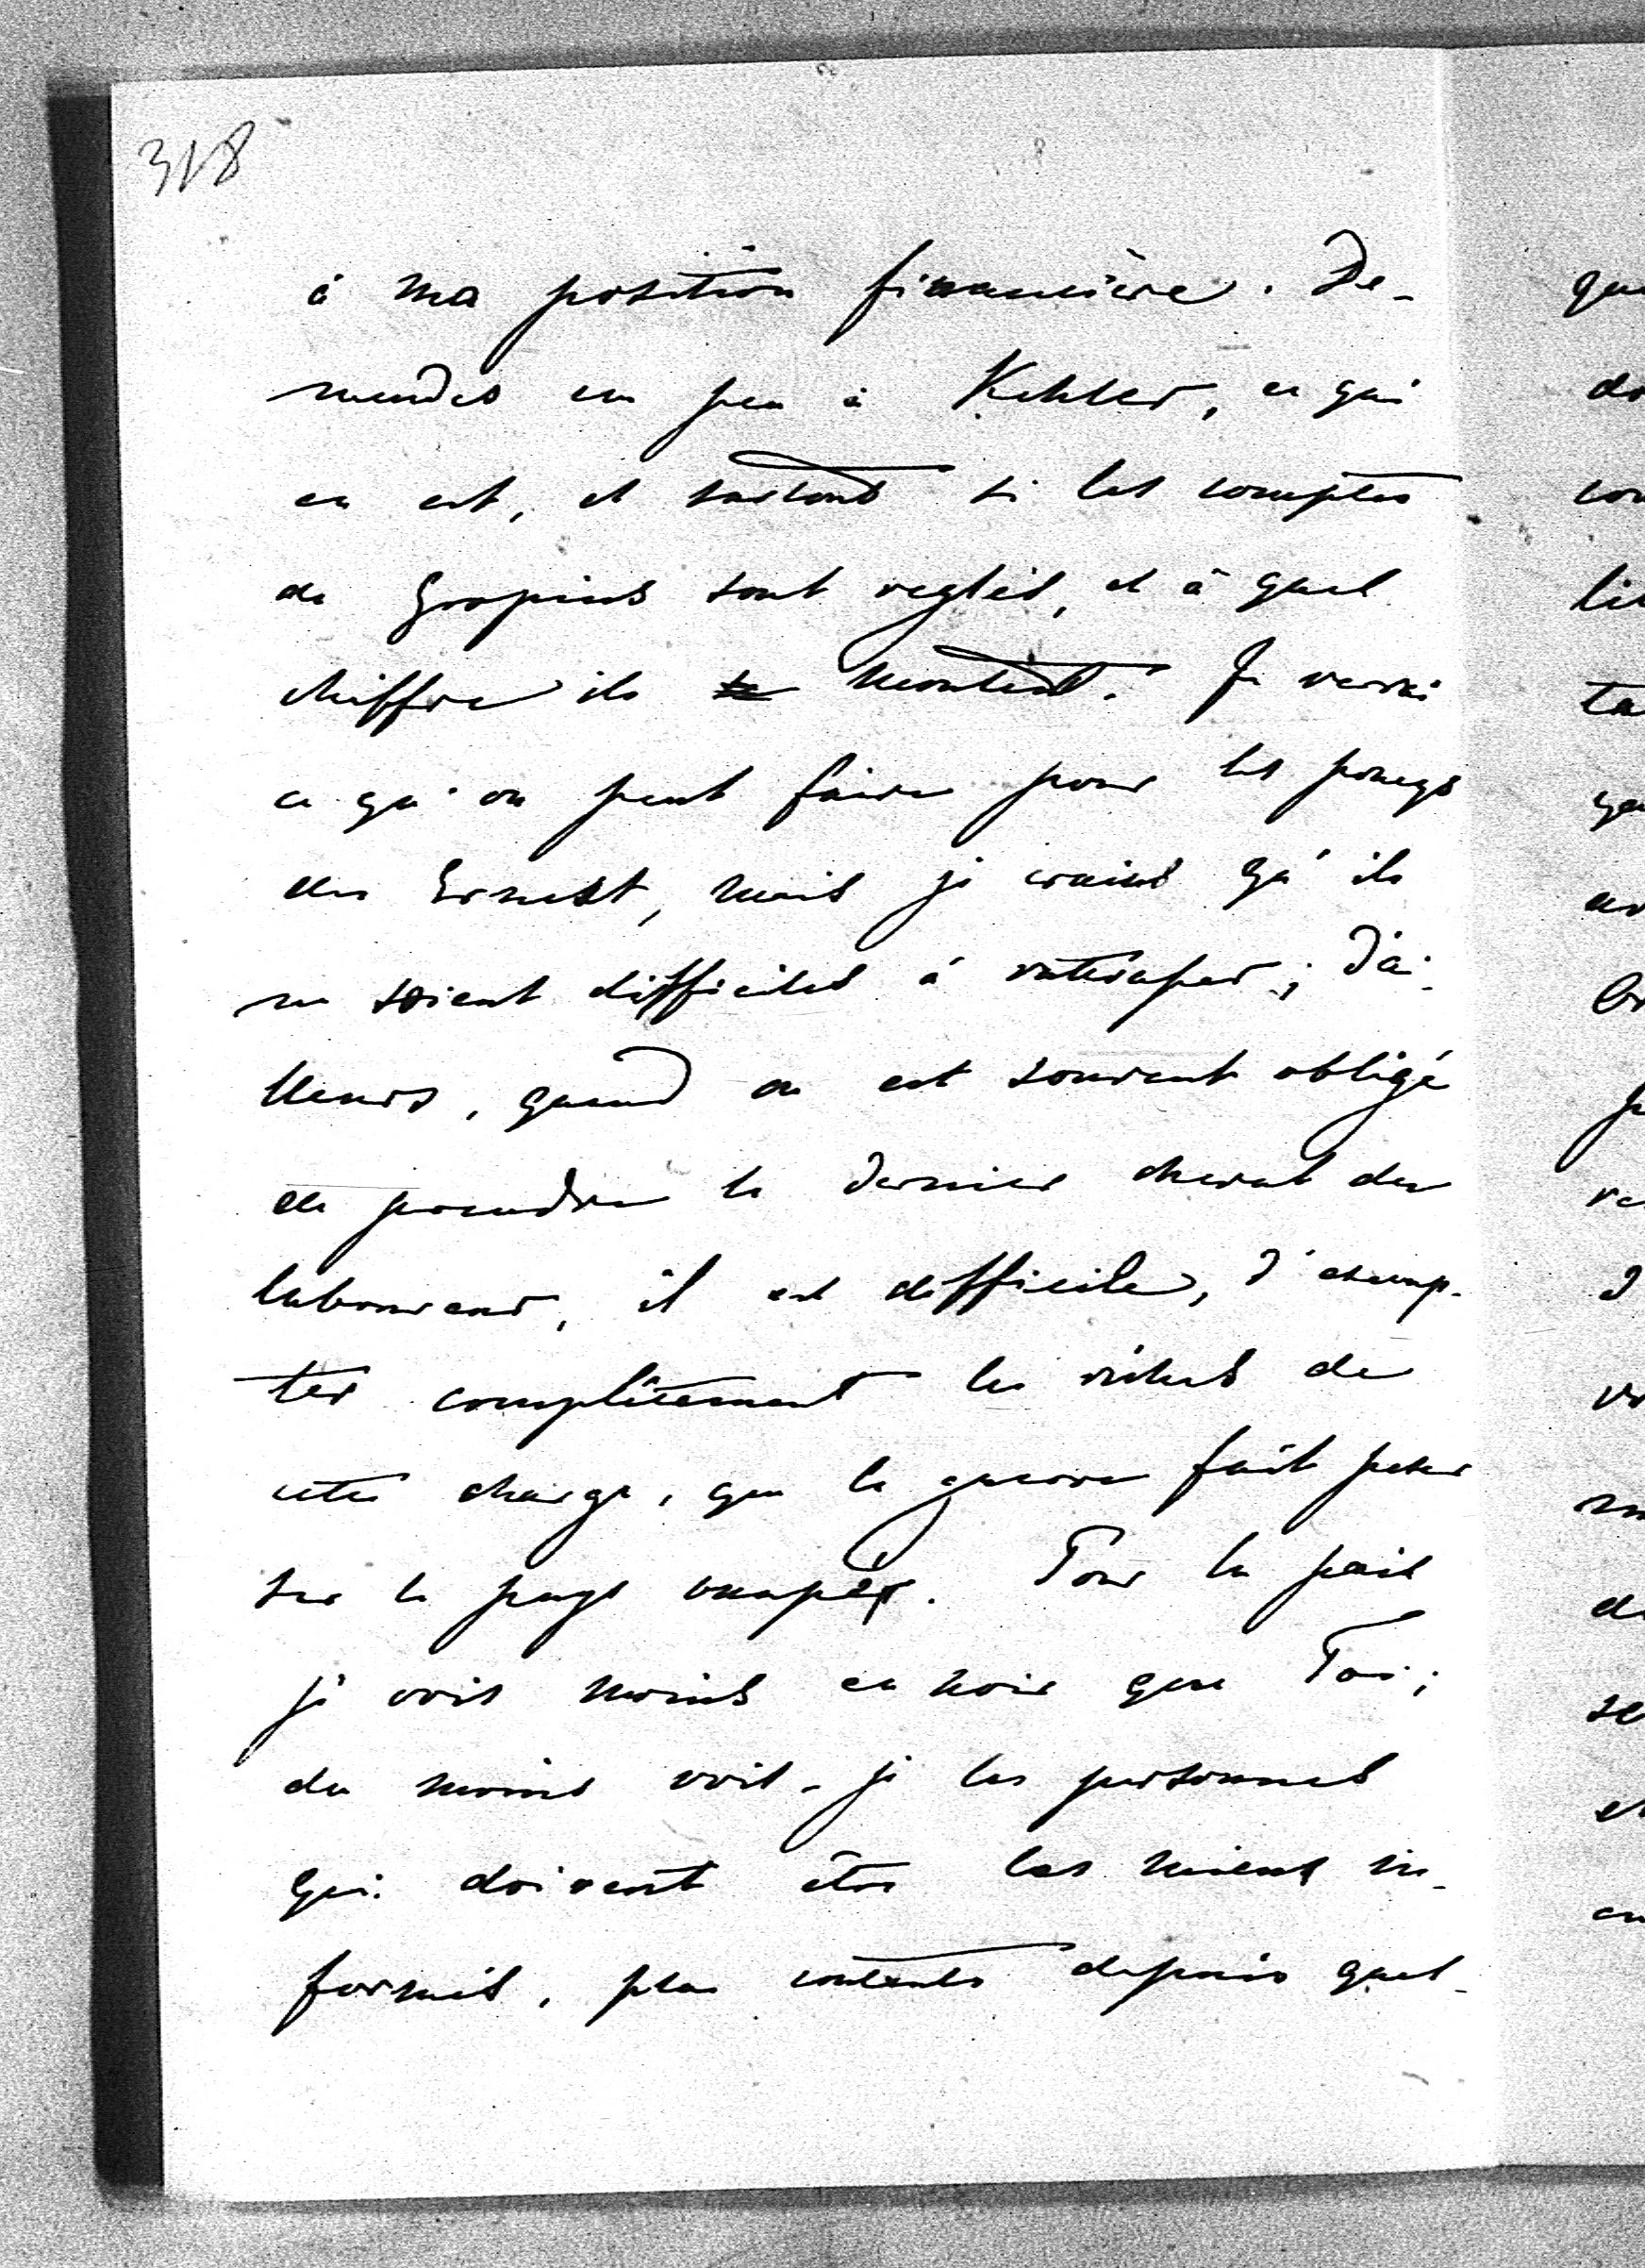 318
à ma position financière. De-
mandes un peu à Kehler, ce qui
en est, et surtout si les comptes
de Gropius sont reglés, et à quel
chiffre ils montent. Je verrai
ce qu'on peut faire pour les poneys
des Ernest, mais je crains qu'ils
ne soient difficiles à rattraper; d'ai-
lleurs, quand on est souvent obligé
de prendre le dernier cheval du
laboureur, il est difficile, d'exemp-
ter complètement les riches de
cette charge, que la guerre fait peser
sur le pays occupé. Pour la paix
je vois moins en noir que Toi;
du moins vois-je les personnes
qui doivent être les mieux in-
formés, plus contents depuis quel-